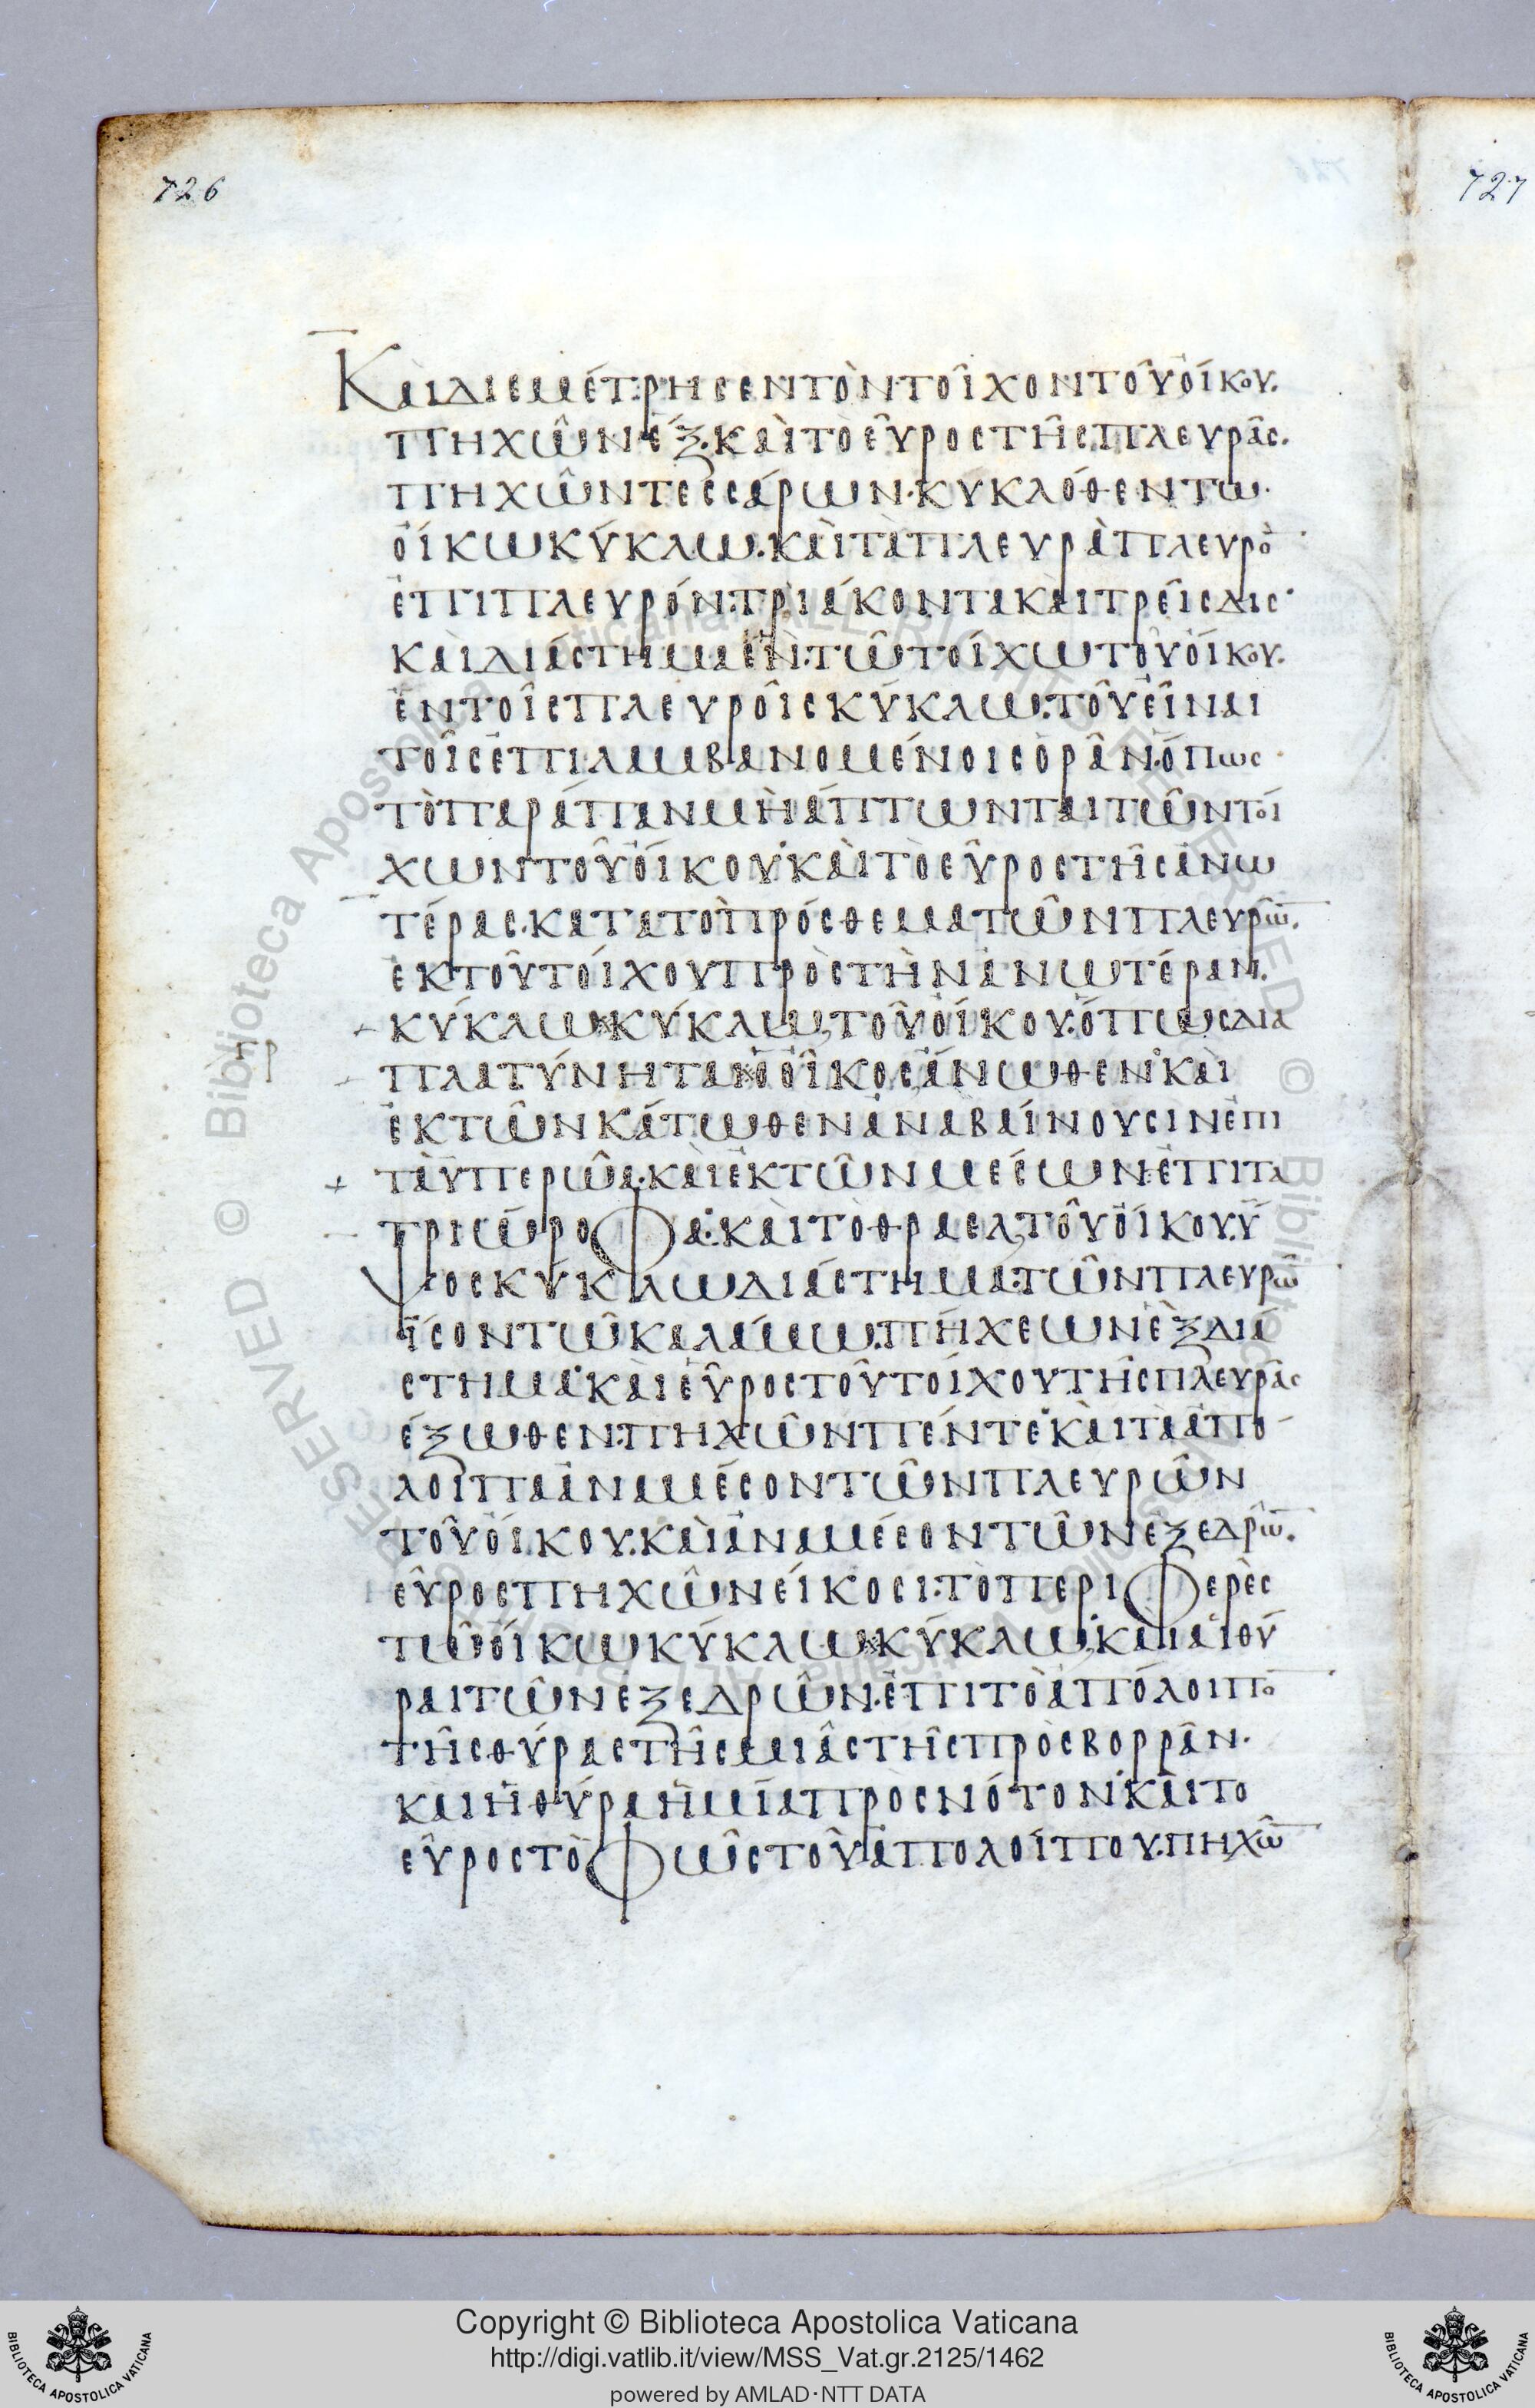 726
727
Καὶ διεμέτρησεν τὸν τοῖχον τοῦ οἴκου.
πηχῶν ἕξ. καὶ τὸ εὖρος τῆς πλευρᾶς.
πηχῶν τεσσάρων. κυκλόθεν τω
οἴκω κύκλω. καὶ τὰ πλευρὰ πλευρὸ̄
ἐπι πλευρόν. τριάκοντα καὶ τρεῖς δις·
καὶ διάστημα ἐν τῶ τοίχω τοῦ οἴκου.
ἐν τοῖς πλευροῖς κύκλω. τοῦ εἶναι
τοῖς ἐπιλαμβανομένοις ὁρᾶν. ὅπως
τὸ παράπαν μὴ ἅπτωνται τῶν τοί
χων τοῦ οἴκου· καὶ τὸ εὖρος τῆς ἀνω
τέρας. κατα τὸ πρόσθεμα τῶν πλευρῶ̄.
ἐκ τοῦ τοίχου πρὸς τὴν ἀνωτέραν.
κύκλω※κύκλω, τοῦ οἴκου. ὅπως δια
πλατύνηται※ὁ οἶκος ἄνωθεν· καὶ
ἐκ τῶν κάτωθεν ἀναβαίνουσιν ἐπι
τὰ ὑπερῶα. καὶ ἐκ τῶν μέσων. ἐπι τα
τριώροφα· καὶ τὸ θραελ, τοῦ οἴκου. ὕ
ψος κύκλω διάστημα. τῶν πλευρῶ̄
ἴσον τῶ καλάμω. πήχεων ἓξ διά
στημα· καὶ εὖρος τοῦ τοίχου τῆς πλευρᾶς
ἔξωθεν. πηχῶν πέντε· καὶ τὰ ἀπό
λοιπα ἀναμέσον τῶν πλευρῶν
τοῦ οἴκου. καὶ ἀναμέσον τῶν ἐξεδρῶ̄.
εὖρος πηχῶν είκοσι. τὸ περιφερὲς
τῶ οἴκω κύκλω※κύκλω, καὶ αἱ θύ
ραι τῶν ἐξεδρῶν. ἐπι τὸ ἀπόλοιπο̄
τῆς θύρας τῆς μιᾶς τῆς πρὸς βορρᾶν.
καὶ ἡ θύρα ἡ μία πρὸς νότον· καὶ το
εὖρος τὸ φῶς τοῦ ἀπολοίπου. πηχῶ̄
Copyright © Biblioteca Apostolica Vaticana
http://digi.vatlib.it/view/MSS_Vat.gr.2125/1462
powered by AMLAD·NTT DATA
BIBLIOTECA APOSTOLICA VATICANA
BIBLIOTECA APOSTOLICA VATICANA